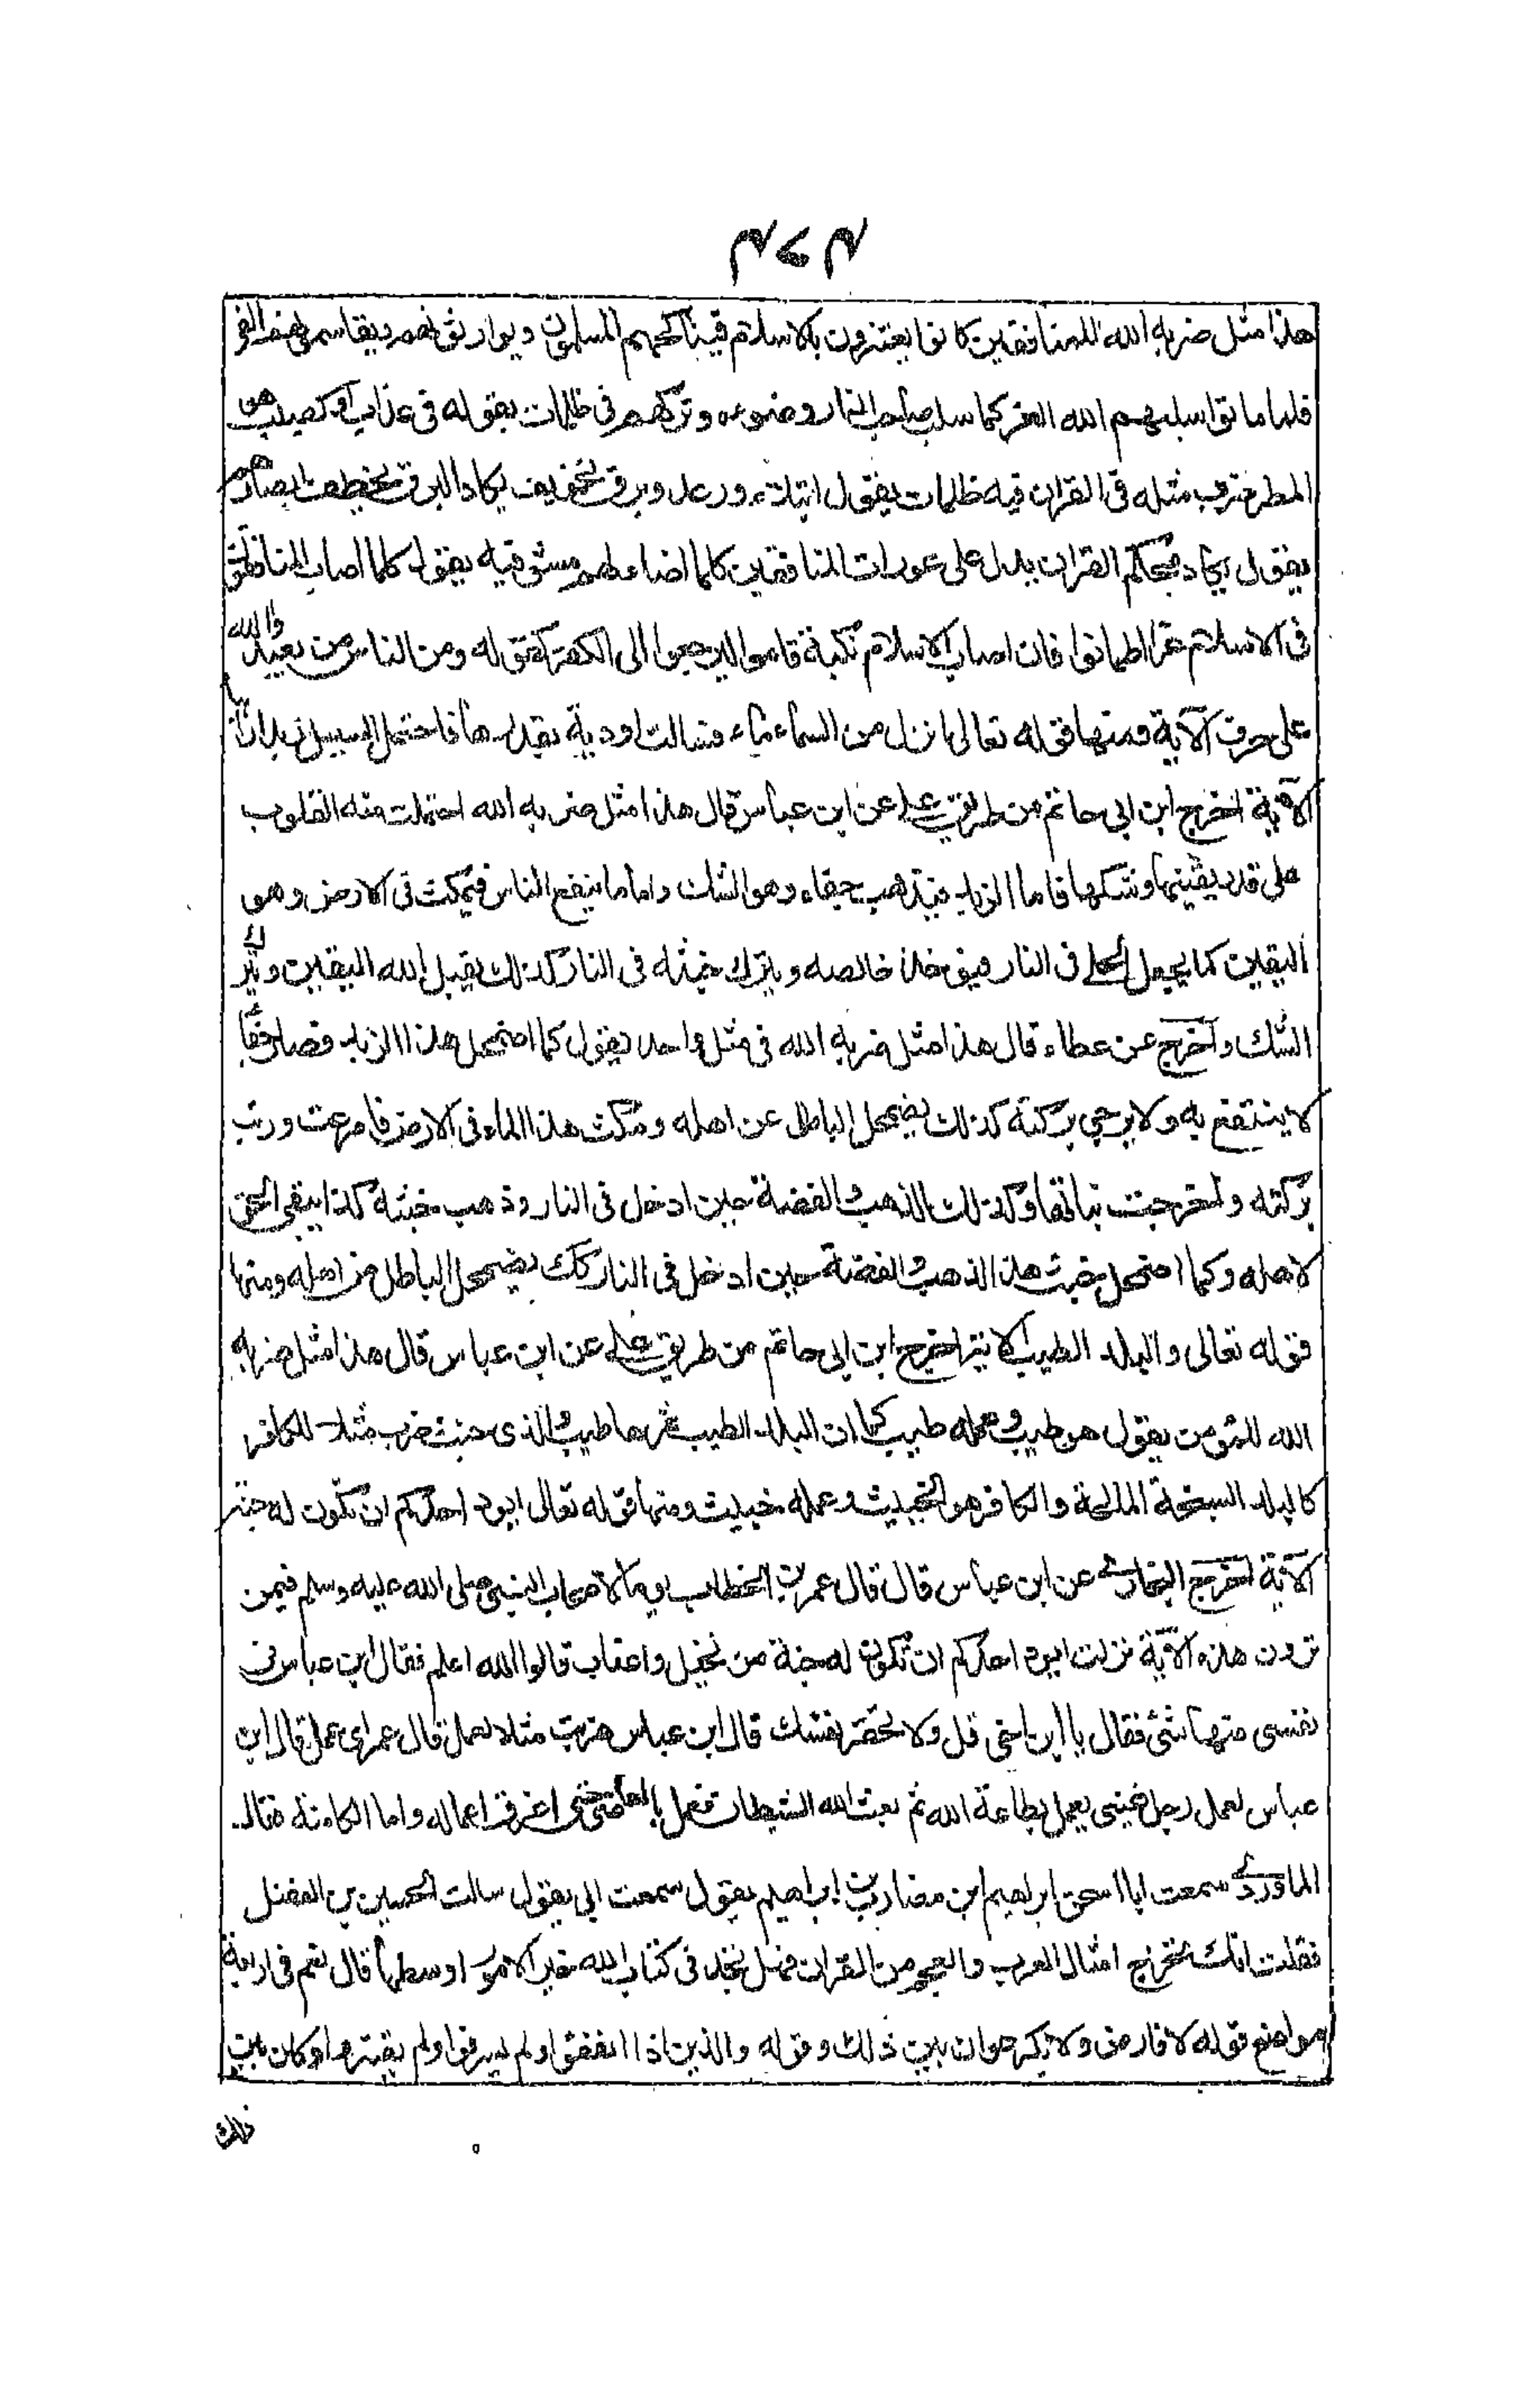 ٣٧٣
هذا مثل ضربه الله للمنافقين كانوا يعتزون بالاسلام فيناكحهم المسلمون ويوارثونهم ويقاسمونهم الفئ
فلما ماتوا سلبهم الله العز كما سلب صاحب النار وضوءه وتركهم في ظلمات يقول في عذاب او كصيب هو
المطر ضرب مثله في القران فيه ظلمات يقول ابتلاء ورعد وبرق تخويف يكاد البرق يخطف ابصارهم
يقول يكاد محكم القران يدل على عورات المنافقين كلما اضاء لهم مشوا فيه يقول كلما اصاب المنافقون
في الاسلام عزا اطمانوا فان اصاب الاسلام نكبة قاموا ليرجعوا الى الكفر كقوله ومن الناس من يعبد الله
على حرف الآية ومنها قوله تعالى انزل من السماء ماء فسالت اودية بقدرها فاحتمل السيل زبدا رابيا
الآية اخرج ابن ابي حاتم من طريق علي عن ابن عباس قال هذا مثل ضربه الله احتملت منه القلوب
على قدر يقينها وشكها فاما الزبد فيذهب جفاء وهو الشك واما ما ينفع الناس فيمكث في الارض وهو
اليقين كما يجعل الحلي في النار فيؤخذ خالصه ويترك خبثه في النار كذلك يقبل الله اليقين ويترك
الشك واخرج عن عطاء قال هذا مثل ضربه الله في مثل واحد يقول كما اضمحل هذا الزبد فصار جفاء
لا ينتفع به ولا يرجى بركته كذلك يضمحل الباطل عن اهله ومكث هذا الماء في الارض فامرعت وربت
بركته واخرجت نباتها وكذلك الذهب والفضة حين ادخل في النار وذهب خبثه كذا يبقى الحق
لاهله وكما اضمحل خبث هذا الذهب والفضة حين ادخل في النار كذلك يضمحل الباطل من اهله ومنها
قوله تعالى والبلد الطيب الاية اخرج ابن ابي حاتم من طريق علي عن ابن عباس قال هذا مثل ضربه
الله للمؤمن يقول هو طيب وعمله طيب كما ان البلد الطيب ثمرها طيب والذي خبث ضرب مثلا للكافر
كالبلد السبخة المالحة والكافر هو الخبيث وعمله خبيث ومنها قوله تعالى ايود احدكم ان تكون له جنة
الآية اخرج البخاري عن ابن عباس قال قال عمر بن الخطاب يوما لاصحاب النبي صلى الله عليه وسلم فيمن
ترون هذه الآية نزلت ايود احدكم ان تكون له جنة من نخيل واعناب قالوا الله اعلم فقال ابن عباس في
نفسي منها شئ فقال يا ابن اخي قل ولا تحقر نفسك قال ابن عباس ضربت مثلا لعمل قال عمر اي عمل قال ابن
عباس لعمل رجل غني يعمل بطاعة الله ثم بعث الله الشيطان فعمل بالمعاصي حتى اغرق اعماله واما الكامنة فقال
الماوردي سمعت ابا اسحق ابراهيم ابن مضارب بن ابراهيم يقول سمعت ابي يقول سالت الحسين بن الفضل
فقلت انك تخرج امثال العرب والعجم من القران فهل تجد في كتاب الله خير الامور اوسطها قال نعم في اربعة
مواضع قوله لا فارض ولا بكر عوان بين ذلك وقوله والذين اذا انفقوا لم يسرفوا ولم يقتروا وكان بين
ذلك